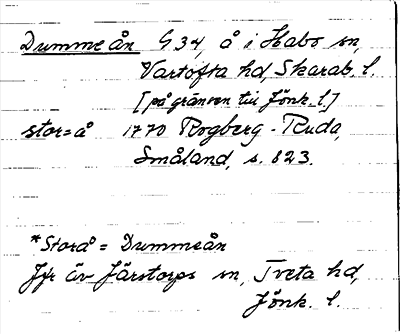 Dumme ån G 34, å i Habo sn,
Vartofta hd, Skarab. l.
[på gränsen till Jönk. l.]
stor=å 1770 Rogberg - Ruda,
Småland, s. 823.
*Storå = Dummeån
Jfr äv Järstorps sn, Tveta hd,
Jönk. l.